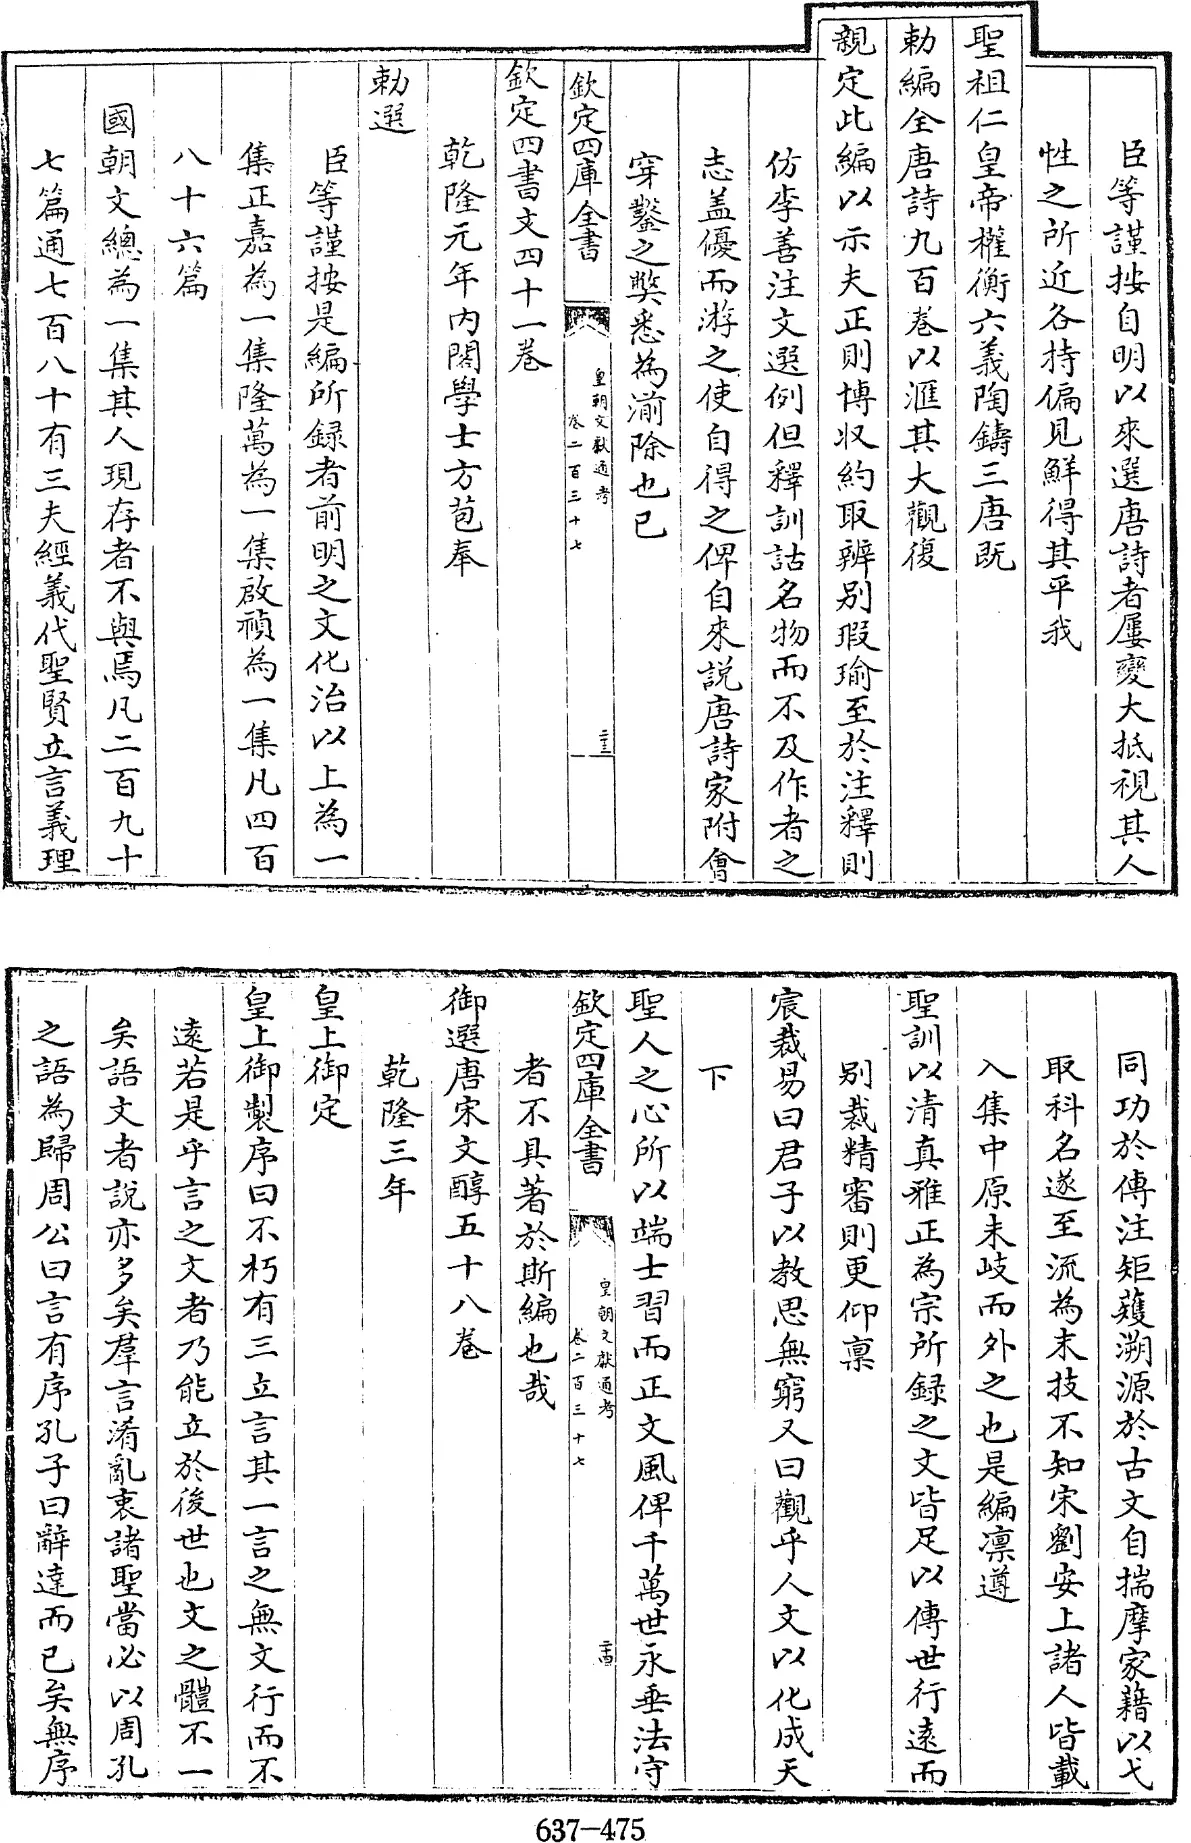 臣等謹按自明以來選唐詩者屢變大抵視其人
性之所近各持偏見鮮得其平我
聖祖仁皇帝權衡六義陶鑄三唐既
勅編全唐詩九百卷以滙其大觀復
親定此編以示夫正則博收約取辨别瑕瑜至於注釋則
仿李善注文選例但釋訓詁名物而不及作者之
志盖優而游之使自得之俾自來説唐詩家附會
穿鑿之弊悉為湔除也已
欽定四庫全書
皇朝文獻通考
卷二百三十七
二十三
欽定四書文四十一卷
乾隆元年内閣學士方苞奉
勅選
臣等謹按是編所録者前明之文化治以上為一
集正嘉為一集隆萬為一集啟禎為一集凡四百
八十六篇
國朝文總為一集其人現存者不與焉凡二百九十
七篇通七百八十有三夫經義代聖賢立言義理
同功於傳注矩矱溯源於古文自揣摩家藉以弋
取科名遂至流為末技不知宋劉安上諸人皆載
入集中原未岐而外之也是編凛遵
聖訓以清真雅正為宗所録之文皆足以傳世行遠而
别裁精審則更仰禀
宸裁易曰君子以教思無窮又曰觀乎人文以化成天
下
聖人之心所以端士習而正文風俾千萬世永垂法守
欽定四庫全書
皇朝文獻通考
卷二百三十七
二十四
者不具著於斯編也哉
御選唐宋文醇五十八卷
乾隆三年
皇上御定
皇上御製序曰不朽有三立言其一言之無文行而不
遠若是乎言之文者乃能立於後世也文之體不一
矣語文者説亦多矣羣言淆亂衷諸聖當必以周孔
之語為歸周公曰言有序孔子曰辭達而已矣無序
637-475